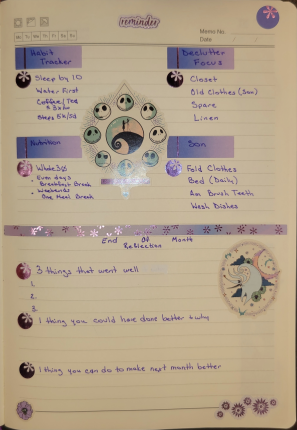 reminder
Mo Tu We Th Fr Sa Su
Memo No.
Date / /
Habit
Tracker
Sleep by 10
Water First
Coffee / Tea
Steps 5k/5d
Declutter
Focus
Closet
Old Clothes (Son)
Spare
Linen
Nutrition
Whole30
Even days
Breakfast Break
Weekends
One Meal Break
Son
Fold Clothes
Bed (Daily)
Am Brush Teeth
Wash Dishes
End Of Month
Reflection
3 things that went well
1.
2.
3.
1 thing you could have done better & why
1 thing you can do to make next month better